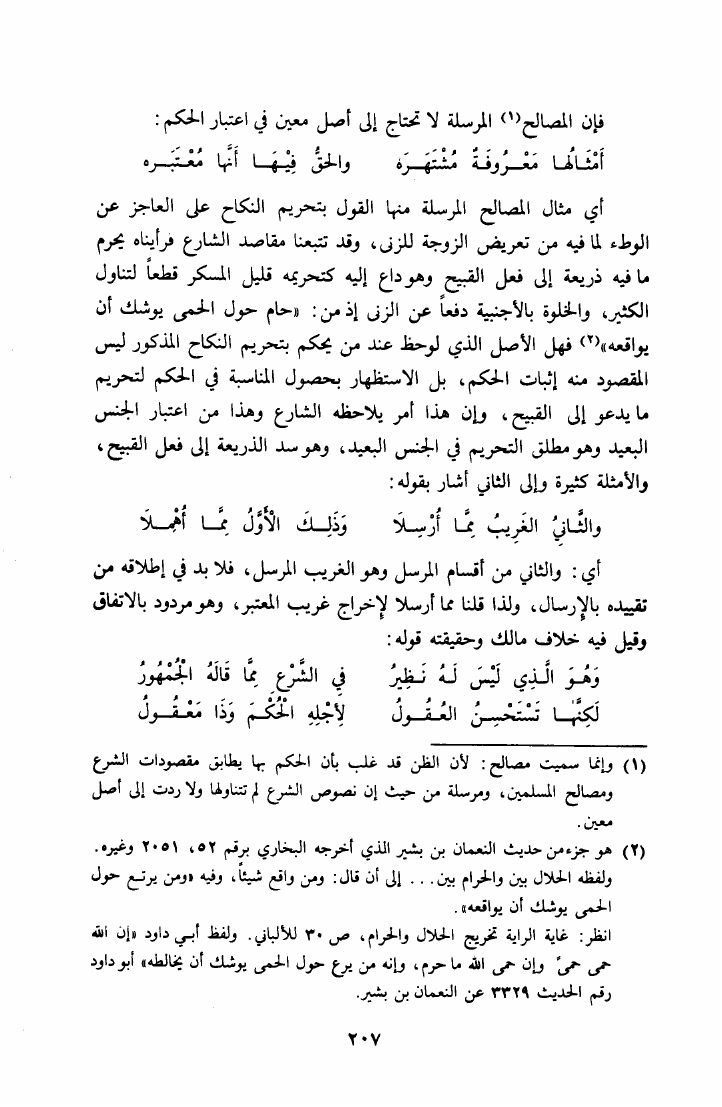 فإن المصالح(١) المرسلة لا تحتاج إلى أصل معين في اعتبار الحكم :
أَمْثَـالُهـا مَعْـرُوفَـةٌ مُشْتَهَـرَه والحقُّ فِيْـهَـا أَنَّها مُعْتَبَـره
أي مثال المصالح المرسلة منها القول بتحريم النكاح على العاجز عن
الوطء لما فيه من تعريض الزوجة للزنى، وقد تتبعنا مقاصد الشارع فرأيناه يحرم
ما فيه ذريعة إلى فعل القبيح وهو داع إليه كتحريمه قليل المسكر قطعاً لتناول
الكثير، والخلوة بالأجنبية دفعاً عن الزنى إذ من: «حام حول الحمى يوشك أن
يواقعه»(٢) فهل الأصل الذي لوحظ عند من يحكم بتحريم النكاح المذكور ليس
المقصود منه إثبات الحكم، بل الاستظهار بحصول المناسبة في الحكم لتحريم
ما يدعو إلى القبيح، وإن هذا أمر يلاحظه الشارع وهذا من اعتبار الجنس
البعيد وهو مطلق التحريم في الجنس البعيد، وهو سد الذريعة إلى فعل القبيح،
والأمثلة كثيرة وإلى الثاني أشار بقوله:
والثَّـانِيُ الغَرِيبُ مِمَّا أُرْسِـلَا وَذَلِـكَ الْأَوَّلُ مِمَّـا أُهْمِـلَا
أي: والثاني من أقسام المرسل وهو الغريب المرسل، فلا بد في إطلاقه من
تقييده بالإرسال، ولذا قلنا مما أرسلا لإخراج غريب المعتبر، وهو مردود بالاتفاق
وقيل فيه خلاف مالك وحقيقته قوله:
وَهُـوَ الَّـذِي لَيْسَ لَـهُ نَـظِيرُ فِي الشَّرْعِ مِمَّا قَالَهُ الْجُمْهُورُ
لَكِنَّهـا تَسْتَحْسِـنُ العُـقُـولُ لِأَجْلِهِ الْحُكْـمَ وَذَا مَعْـقُـولُ
(١) وإنما سميت مصالح: لأن الظن قد غلب بأن الحكم بها يطابق مقصودات الشرع
ومصالح المسلمين، ومرسلة من حيث إن نصوص الشرع لم تتناولها ولا ردت إلى أصل
معين.
(٢) هو جزء من حديث النعمان بن بشير الذي أخرجه البخاري برقم ٥٢، ٢٠٥١ وغيره.
ولفظه الحلال بين والحرام بين... إلى أن قال: ومن واقع شيئاً، وفيه «ومن يرتع حول
الحمى يوشك أن يواقعه».
انظر: غاية الراية تخريج الحلال والحرام، ص ٣٠ للألباني. ولفظ أبي داود «إن الله
حمى حمىً وإن حمى الله ما حرم، وإنه من يرع حول الحمى يوشك أن يخالطه» أبو داود
رقم الحديث ٣٣٢٩ عن النعمان بن بشير.
٢٠٧